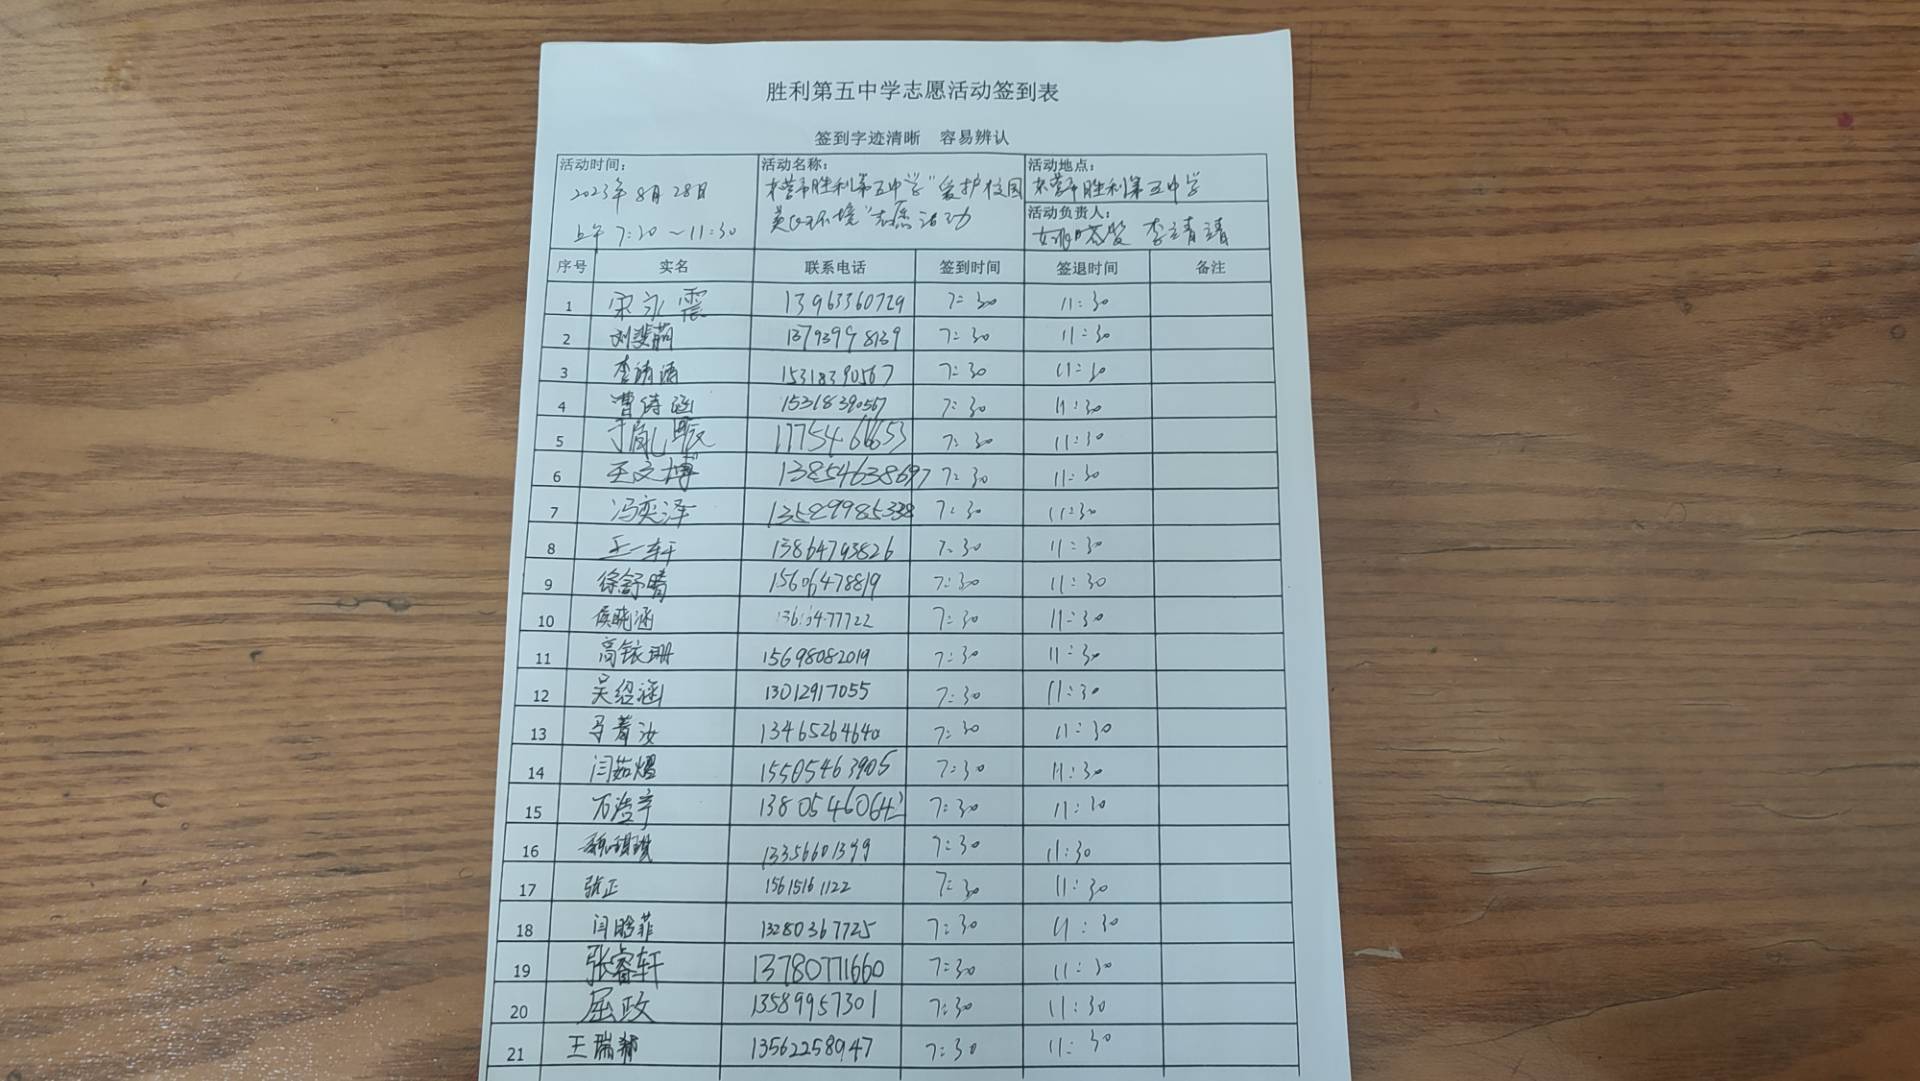 胜利第五中学志愿活动签到表
签到字迹清晰 容易辨认
活动时间: 活动名称: 活动地点:
2023年8月28日 东营市胜利第五中学"爱护校园 东营市胜利第五中学
美化环境"志愿活动 活动负责人:
上午 7:30～11:30 李靖靖
序号 实名 联系电话 签到时间 签退时间 备注
1 宋永震 13963360729 7:30 11:30
2 刘斐 13793998139 7:30 11:30
3 李靖 15318390567 7:30 11:30
4 曹倚涵 15318390567 7:30 11:30
5 1775466653 7:30 11:30
6 王文博 13854638697 7:30 11:30
7 冯奕泽 13589985338 7:30 11:30
8 王一轩 13864793826 7:30 11:30
9 徐舒晴 15606478819 7:30 11:30
10 侯晓涵 7:30 11:30
11 高铱珊 15698082019 7:30 11:30
12 吴绍涵 13012917055 7:30 11:30
13 马菁汝 13465264640 7:30 11:30
14 闫茹熠 15505463905 7:30 11:30
15 万浩宇 7:30 11:30
16 魏琪琪 13356601399 7:30 11:30
17 张正 15615161122 7:30 11:30
18 闫晗菲 13280367725 7:30 11:30
19 张睿轩 13780771660 7:30 11:30
20 屈政 13589957301 7:30 11:30
21 王瑞 13562258947 7:30 11:30